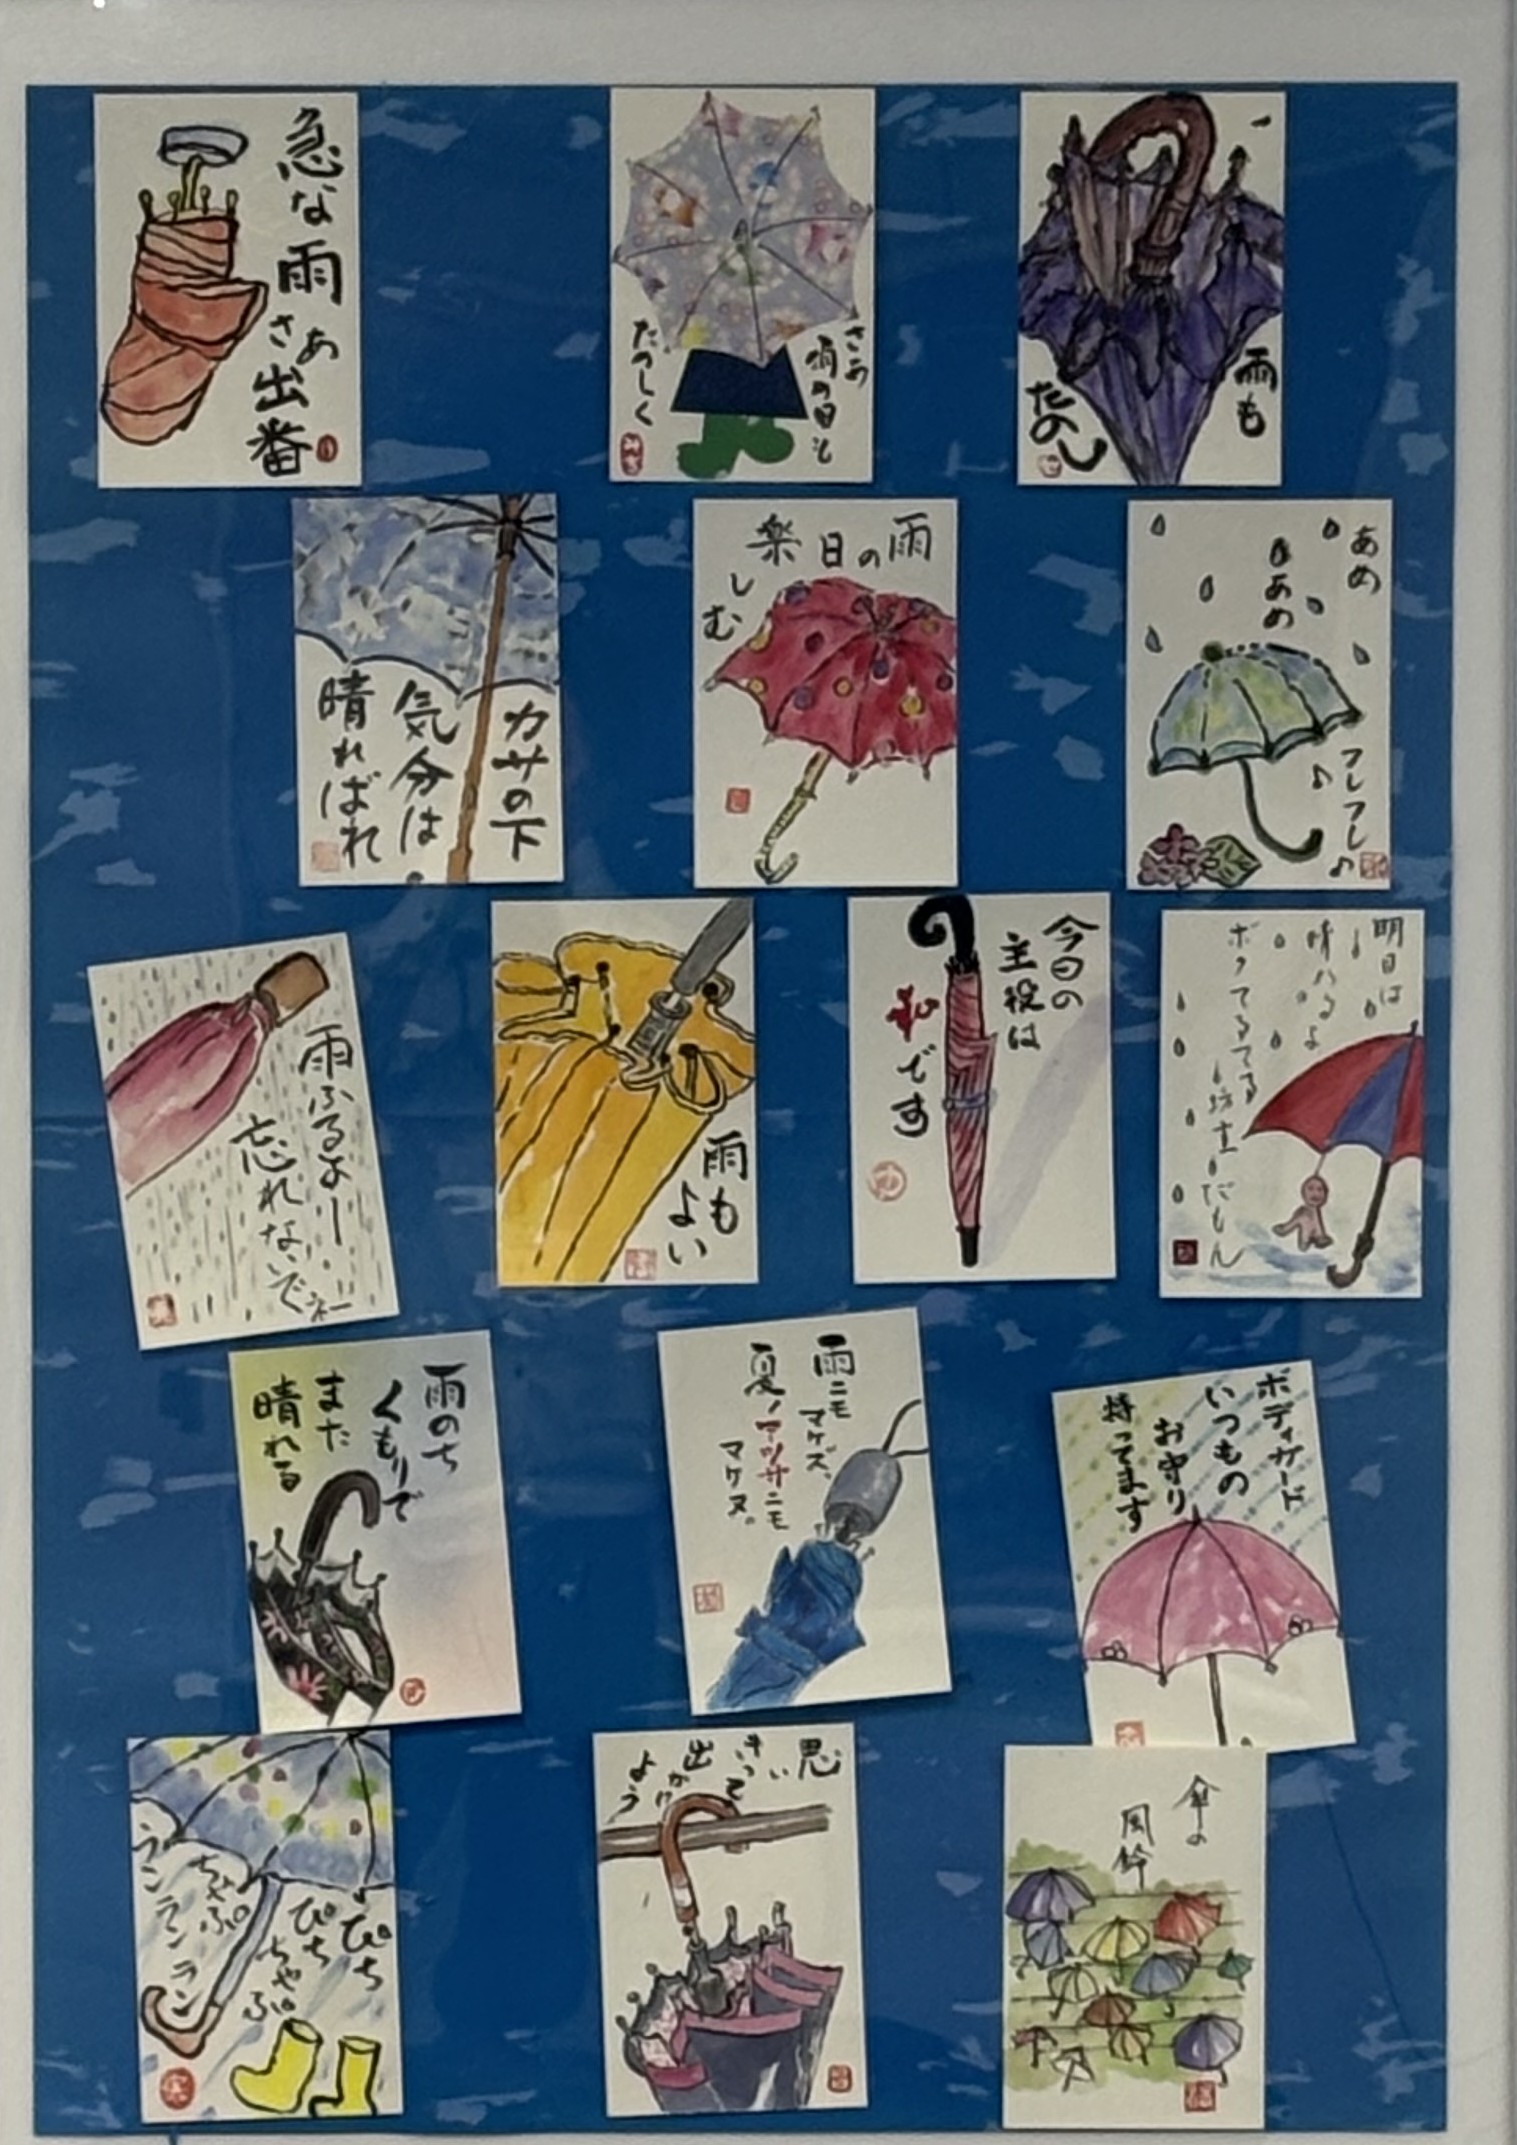 急な雨
さあ
出番
さあ
雨の日も
たのしく
雨も
たのし
カサの下
気分は
晴ればれ
雨の日楽
しむ
あめ
あめ
フレフレ
雨ふるよー
忘れないでネー
雨も
よい
今日の
主役は
です
明日は
晴れるよ
ボクてるてる
坊主だもん
雨のち
くもりで
また
晴れる
雨ニモ
マケズ、
夏ノアツサニモ
マケヌ。
ボディガード
いつもの
お守り
持ってます
ぴち
ぴち
ちゃぷ
ちゃぷ
ランランラン
思い
きって
出かけ
よう
傘の
風鈴